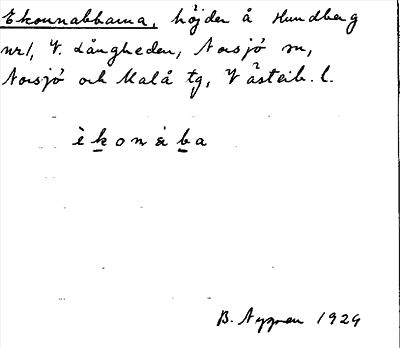 Ekonnabbarna, höjder å Hundberg
nr1, V. Långheden, Norsjö sn,
Norsjö och Malå tg, Västerb. l.
èkonába
B. Nygren 1929